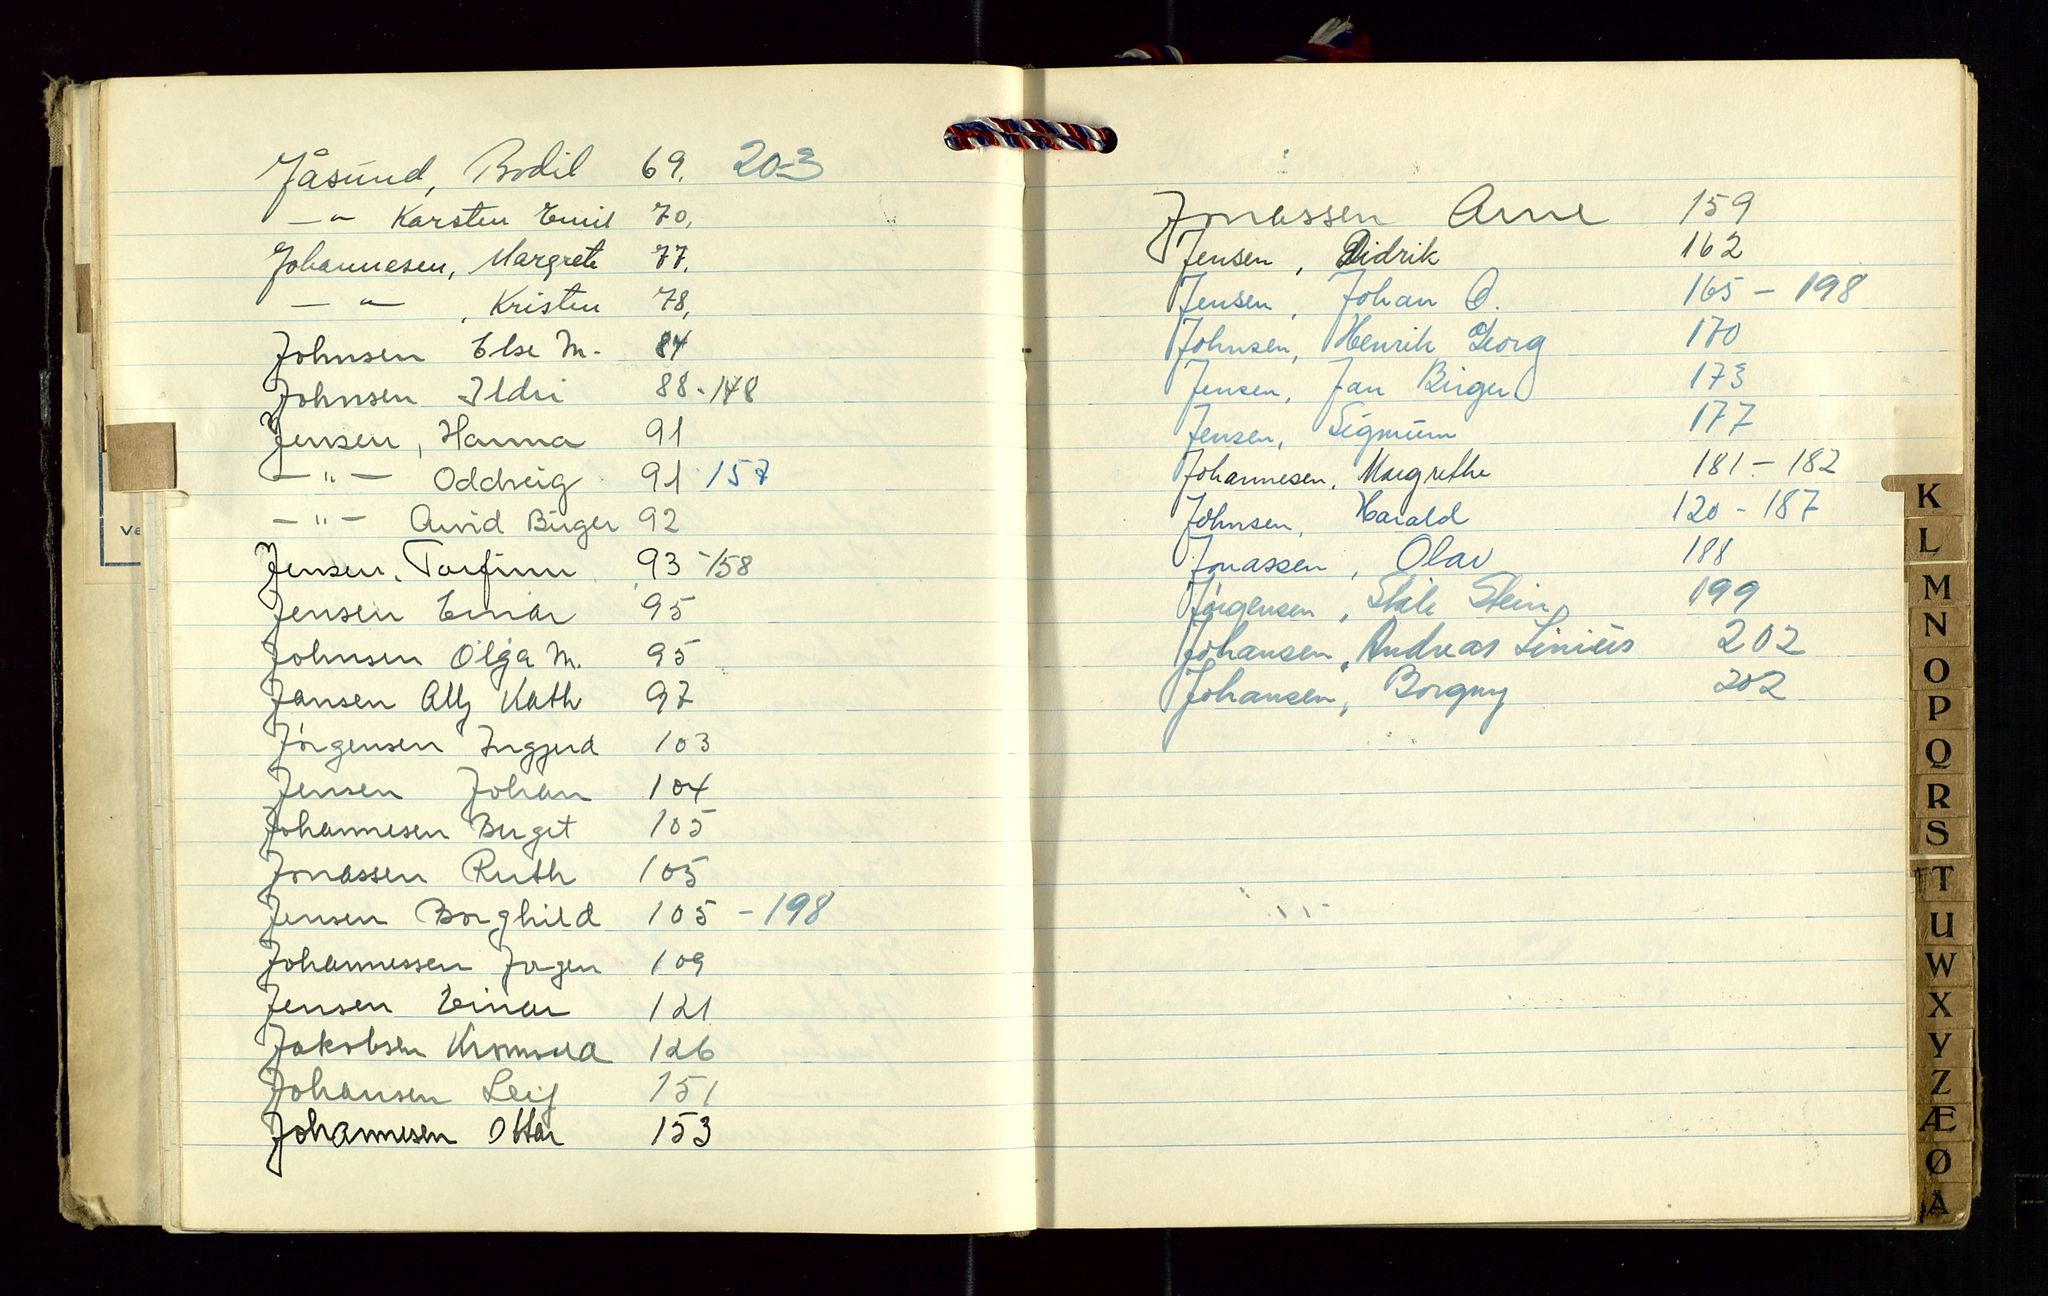 Jåsund, Bodil 69. 203
— " Karsten Emil 70.
Johannesen, Margrete 77.
— " — , Kristen 78.
Johnsen Else M. 84
Johnsen Ildri 88-148
Jensen, Hanna 91
— " — Oddveig 91 157
— " — Arvid Birger 92
Jensen, Torfinn 93-158
Jensen Einar 95
Johnsen Olga M. 95
Jansen Ally Kath 97
Jörgensen Ingjerd 103
Jensen Johan 104
Johannesen Berget 105
Jonassen Ruth 105
Jensen Borghild 105 - 198
Johannessen Jørgen 109
Jensen Einar 121
Jakobsen 126
Johansen Leif 151
Johannesen Ottar 153
Jonassen Arne 159
Jensen, Didrik 162
Jensen, Johan O. 165 - 198
Johnsen, Henrik Georg 170
Jensen, Jan Birger 173
Jensen, Sigmunn 177
Johannesen, Margrethe 181 - 182
Johnsen, Harald 120 - 187
Jonassen, Olav 188
Jörgensen, Ståle Stein 199
Johansen, Andreas Linius 202
Johansen, Borgny 202
K
L
M
N
O
P
Q
R
S
T
U
W
X
Y
Z
Æ
Ø
Å